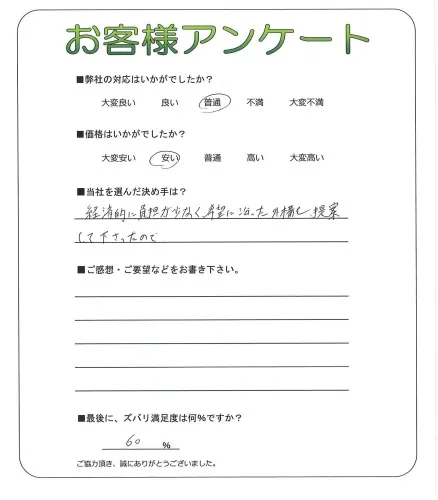 お客様アンケート
■弊社の対応はいかがでしたか？
大変良い 良い 普通 不満 大変不満
■価格はいかがでしたか？
大変安い 安い 普通 高い 大変高い
■当社を選んだ決め手は？
経済的に負担が少なく、希望に沿った外構を提案
して下さったので
■ご感想・ご要望などをお書き下さい。
■最後に、ズバリ満足度は何％ですか？
60 ％
ご協力頂き、誠にありがとうございました。